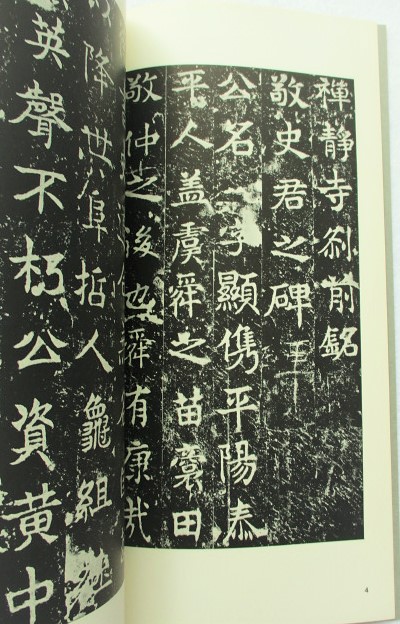 禪靜寺刹前銘
敬史君之碑
公名字顯儁平陽泰
平人盖虞舜之苗裔田
敬仲之後也舜有康哉
降世阜哲人龜組
英聲不朽公資黄中
4